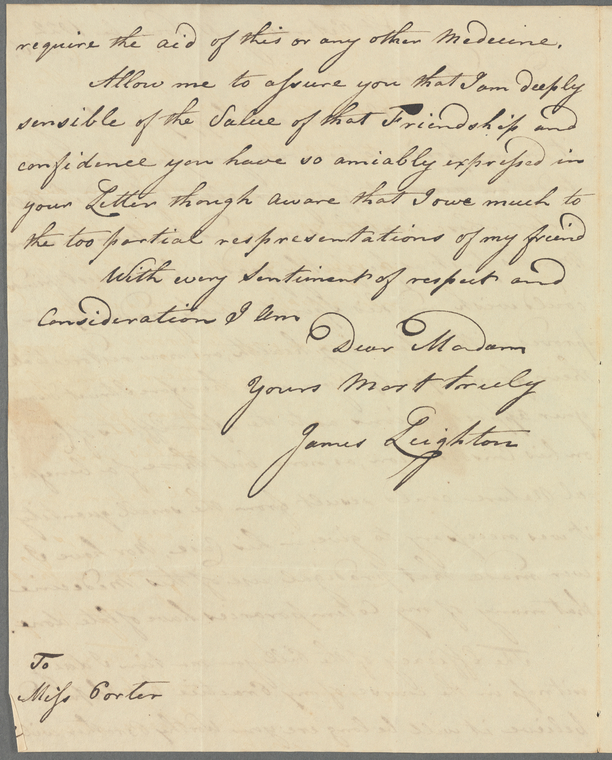 require the aid of this or any other Medecine.
Allow me to assure you that I am deeply
sensible of the Value of that Friendship and
confidence you have so amiably expressed in
your Letter though aware that I owe much to
the too partial respresentations of my friend
With every Sentiment of respect and
Consideration I am
Dear Madam
Yours Most truely
James Leighton
To
Miss Porter